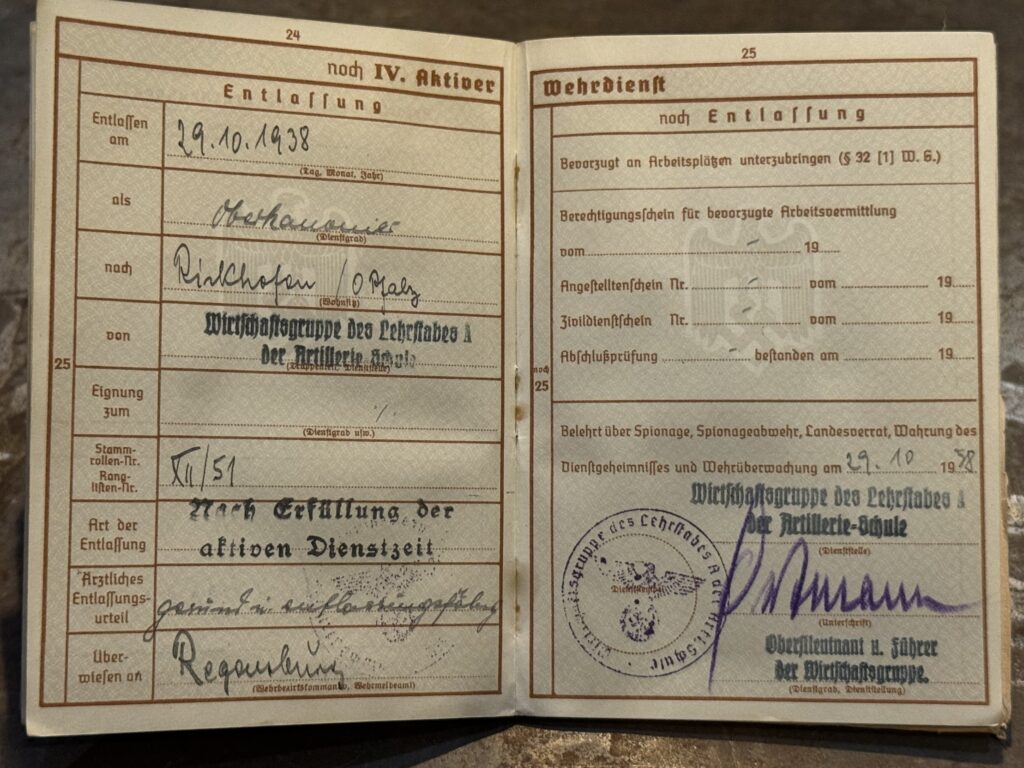 24
noch IV. Aktiver
Entlassung
Entlassen am
29.10.1938
(Tag, Monat, Jahr)
als
Oberkanonier
(Dienstgrad)
nach
Rirkhofen / O Pfalz
(Wohnsitz)
von
Wirtschaftsgruppe des Lehrstabes A
der Artillerie-Schule
(Truppenteil, Dienststelle)
25
Eignung zum
./.
(Dienstgrad usw.)
Stamm-
rollen-Nr.
Rang-
listen-Nr.
XII/51
Art der
Entlassung
Nach Erfüllung der
aktiven Dienstzeit
Ärztliches
Entlassungs-
urteil
gesund u. entlassungsfähig
Über-
wiesen an
Regensburg
(Wehrbezirkskommando, Wehrmeldeamt)
25
Wehrdienst
noch Entlassung
Bevorzugt an Arbeitsplätzen unterzubringen (§ 32 [1] W. G.)
Berechtigungsschein für bevorzugte Arbeitsvermittlung
vom - 19
Angestelltenschein Nr. - vom 19
Zivildienstschein Nr. - vom 19
Abschlußprüfung - bestanden am 19
noch
25
Belehrt über Spionage, Spionageabwehr, Landesverrat, Wahrung des
Dienstgeheimnisses und Wehrüberwachung am 29. 10 1938
Wirtschaftsgruppe des Lehrstabes A
der Artillerie-Schule
(Dienststelle)
Wirtschaftsgruppe des Lehrstabes A der Art. Schule
Dienststempel
(Unterschrift)
Oberstleutnant u. Führer
der Wirtschaftsgruppe.
(Dienstgrad, Dienststellung)